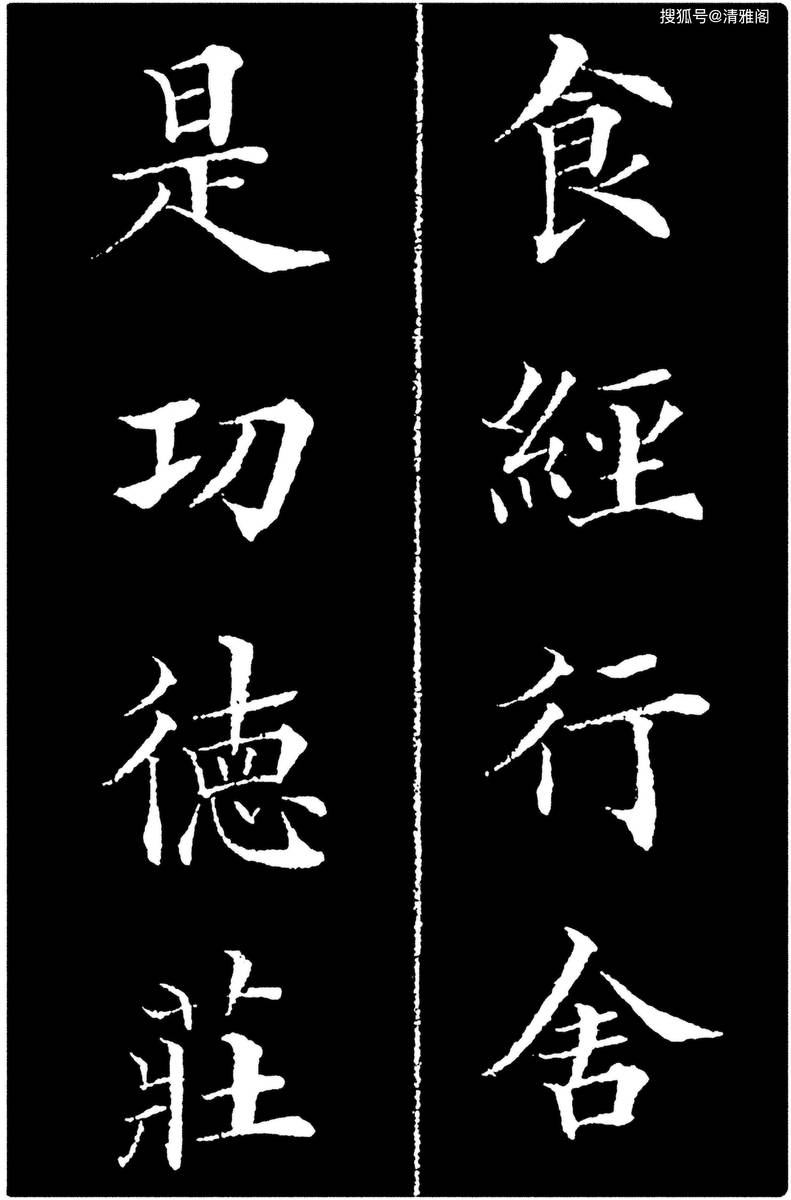 搜狐号@清雅阁
食經行舍
是功德莊